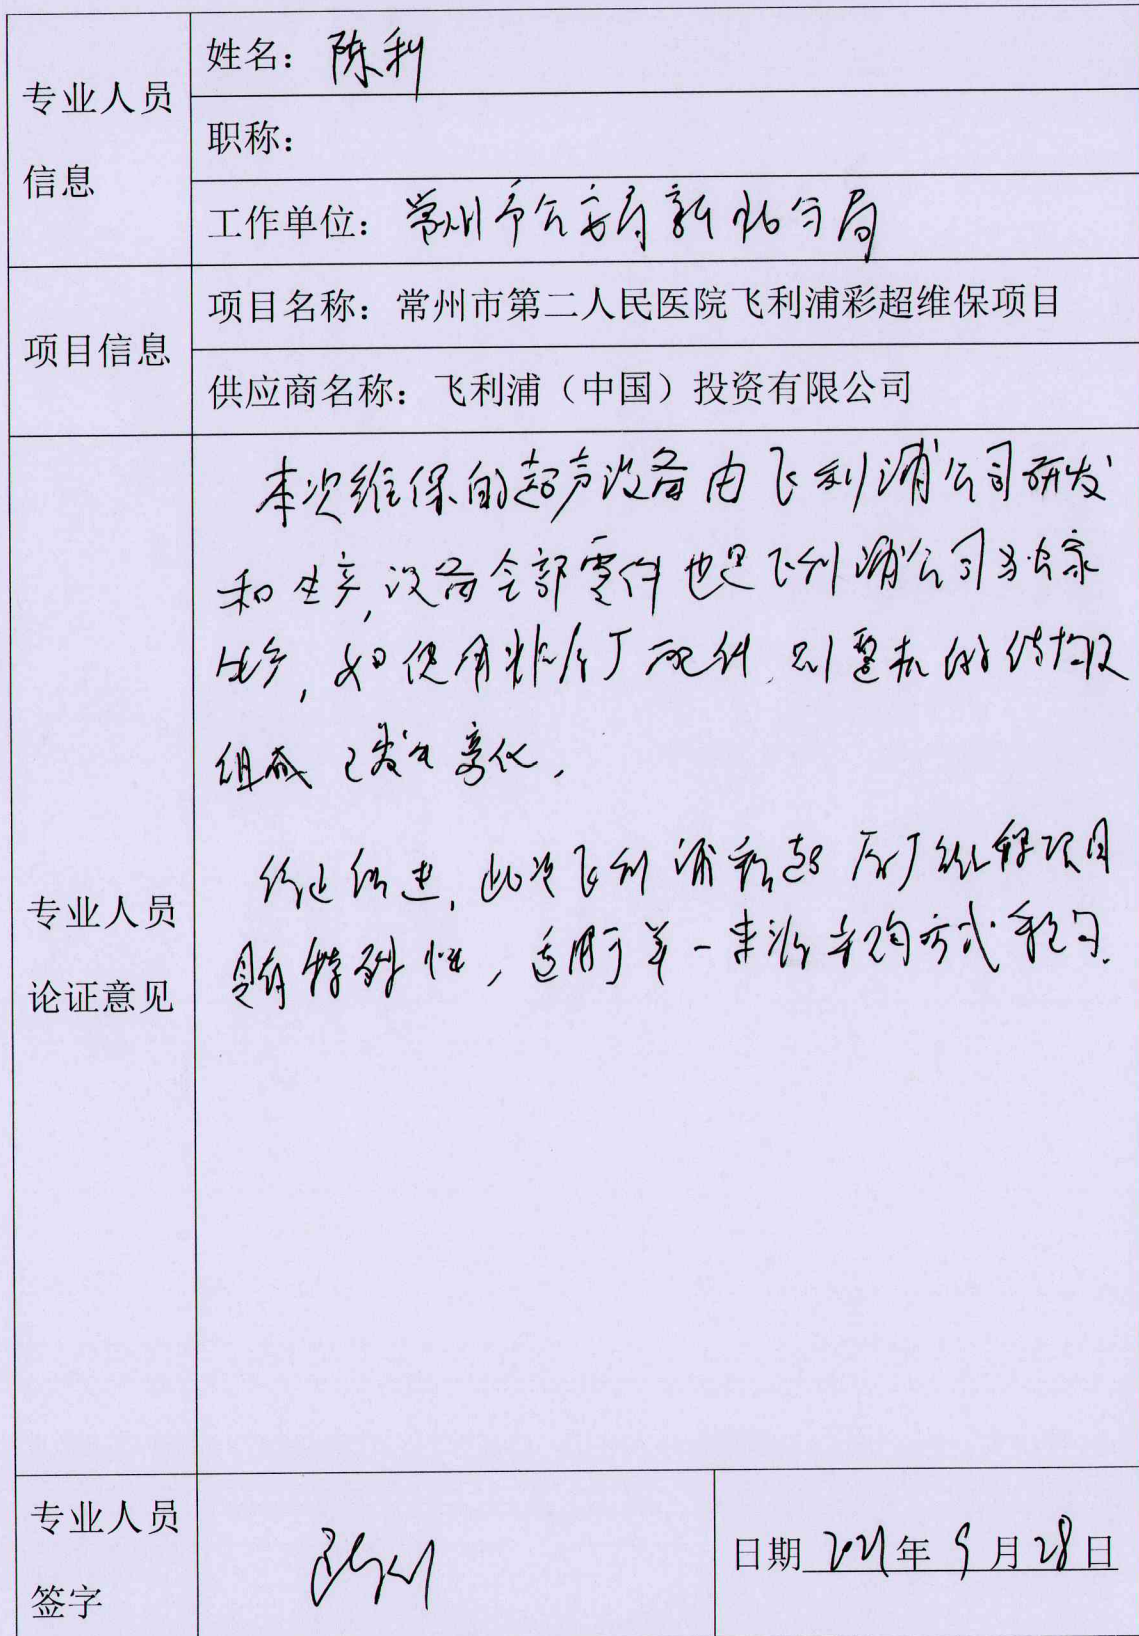 专业人员
信息
姓名：陈利
职称：
工作单位：常州市公安局新北分局
项目信息
项目名称：常州市第二人民医院飞利浦彩超维保项目
供应商名称：飞利浦（中国）投资有限公司
专业人员
论证意见
本次维保的超声设备由飞利浦公司研发
和生产,设备全部零件也是飞利浦公司独家
生产,如使用非原厂配件,则整机的结构及
组成已发生变化,
综上所述,此次飞利浦彩超原厂维保项目
具有特殊性,适用于单一来源采购方式采购.
专业人员
签字
陈利
日期 2021年9月28日